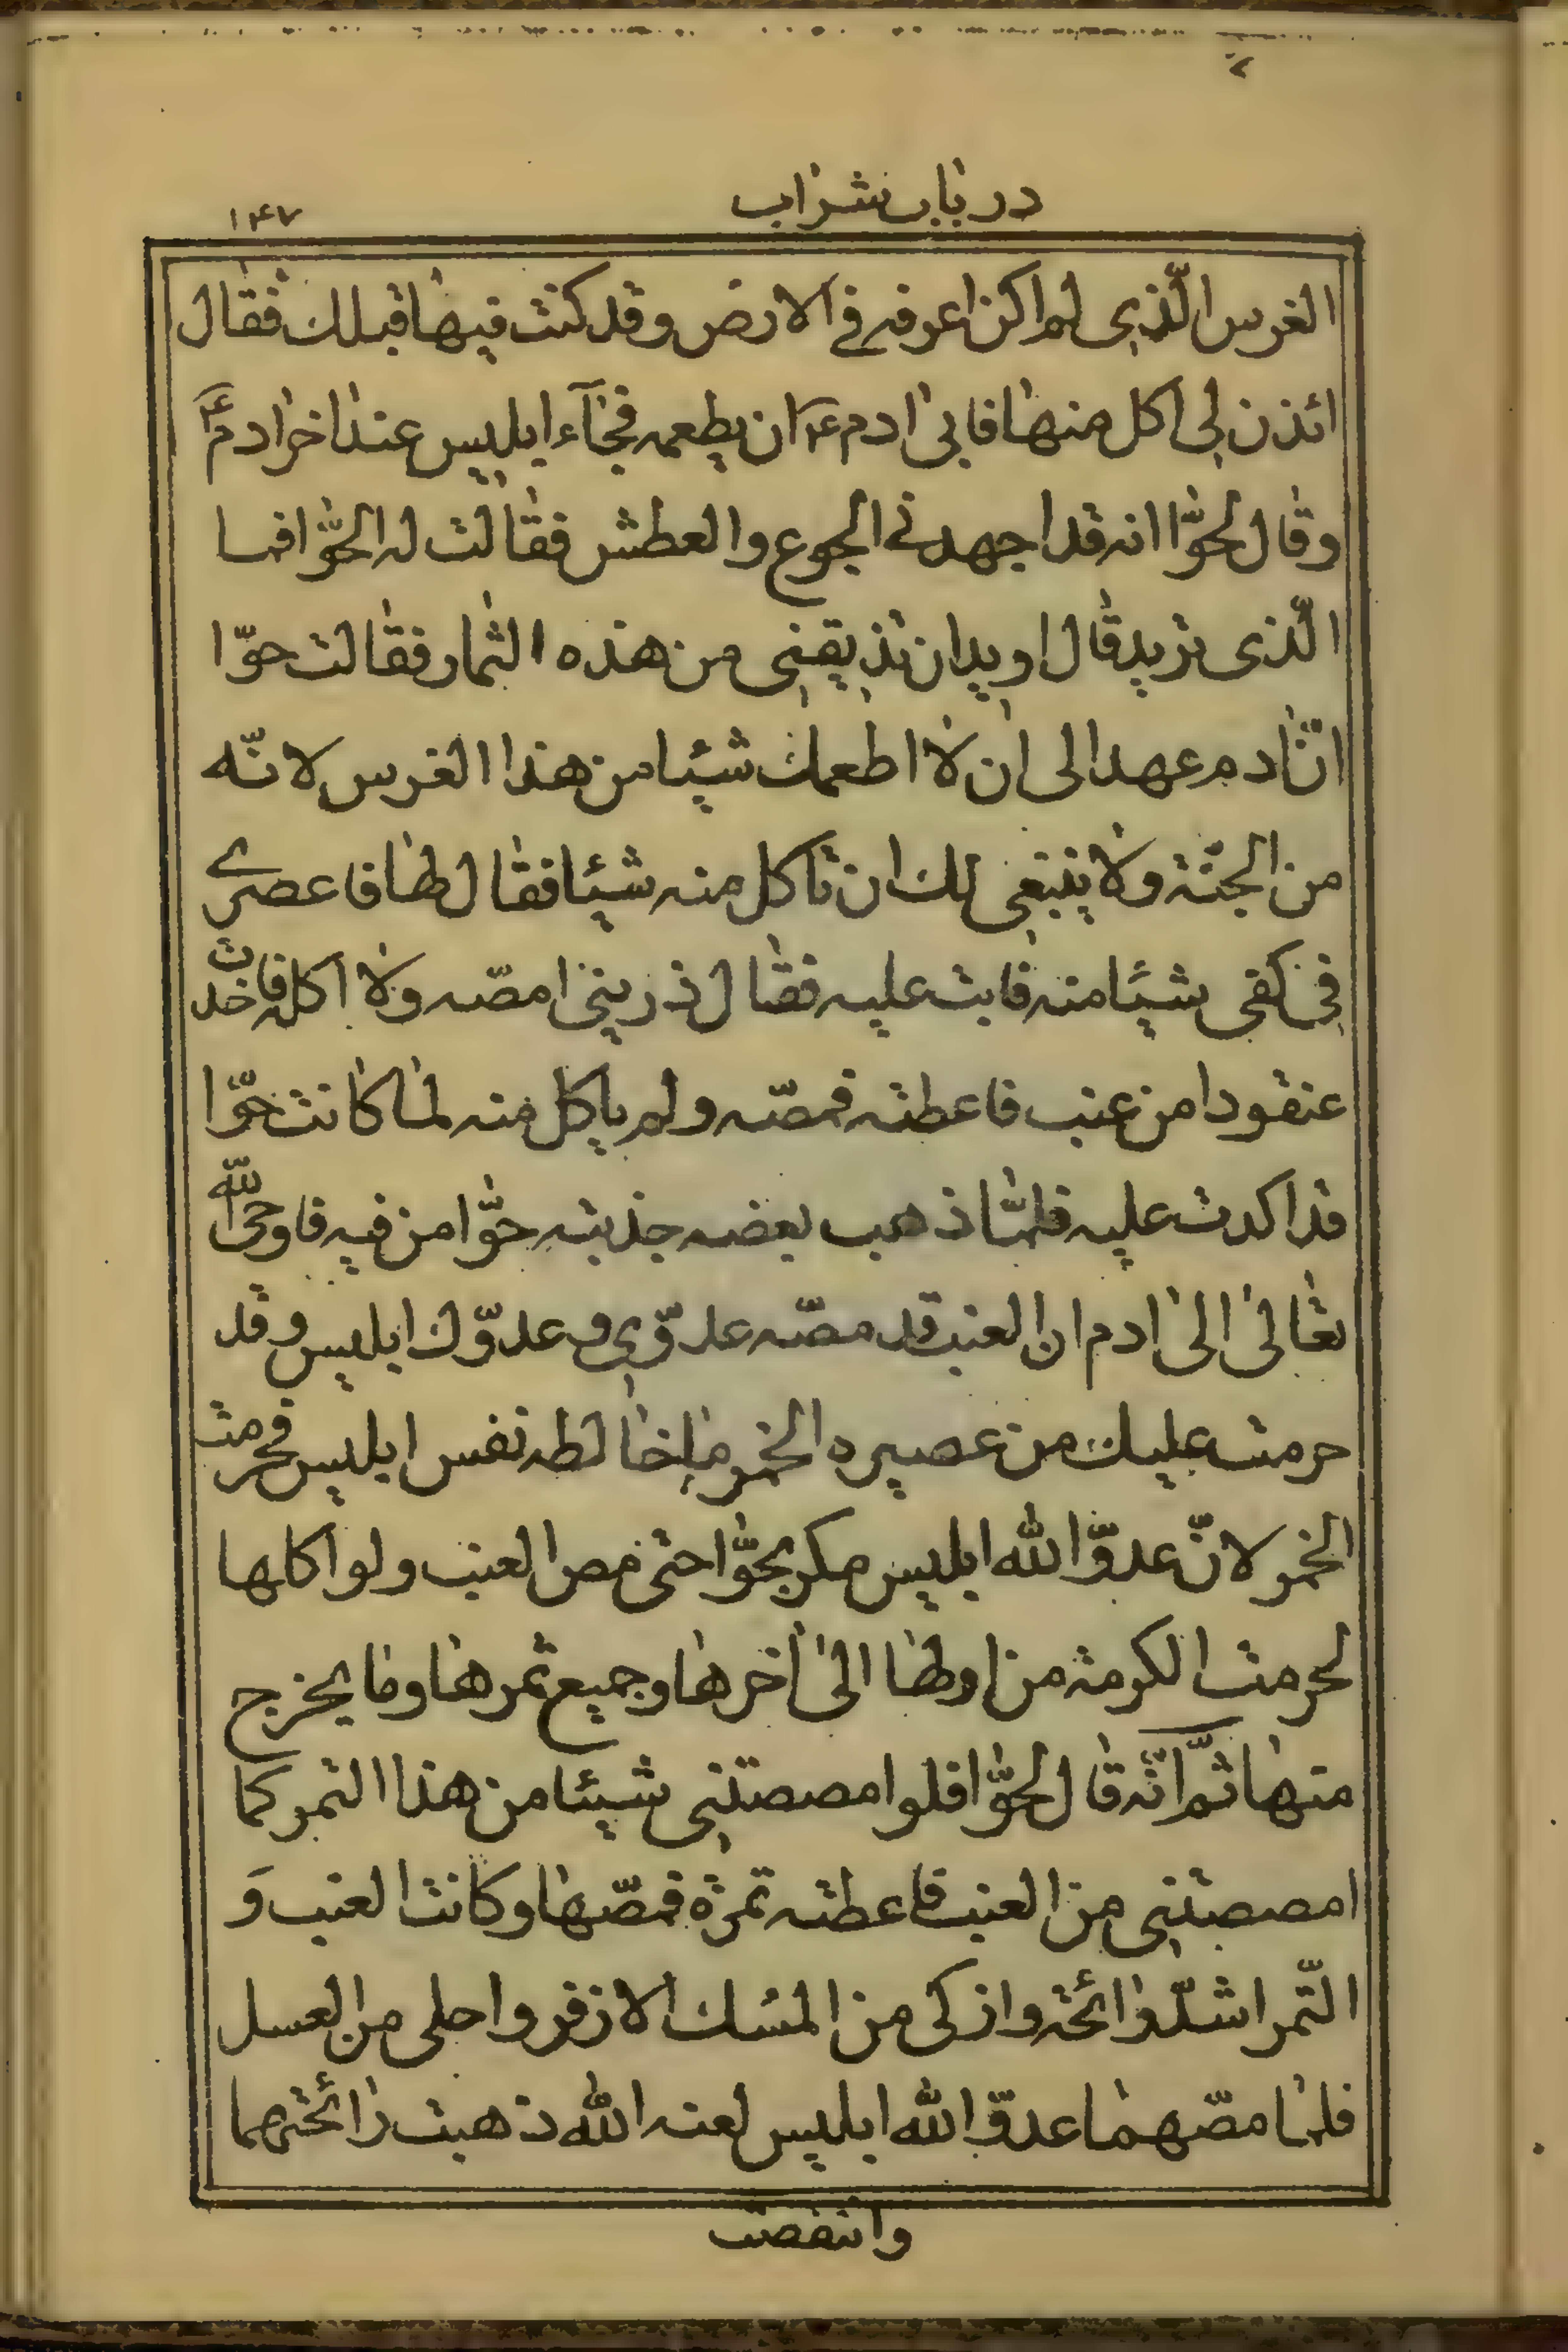 در باب شراب
۱۴۷
الغرس الّذی لم اکن اعرفه فی الارض و قد کنت فیها قبلك فقال
ائذن لی اکل منها فابیٰ ادم ع ان یطعمه فجآء ابلیس عند اخر ادم ع
وقال لحوّا انه قد اجهدنی الجوع والعطش فقالت له الحوّا فما
الّذی ترید قال ارید ان تذیقنی من هذه الثمار فقالت حوّا
انّ ادم عهد الی ان لا اطعمك شیئا من هذا الغرس لانّه
من الجنّة ولا ینبغی لك ان تاکل منه شیئا فقال لها فاعصری
فی کفی شیئا منه فابت علیه فقال ذرینی امصّه ولا اکله فاخذت
عنقودا من عنب فاعطته فمصّه ولم یاکل منه لما کانت حوّا
قد اکدت علیه فلمّا ذهب بعضه جذبته حوّا من فیه فاوحی الله
تعالیٰ الیٰ ادم ان العنب قد مصّه عدوّی و عدوّك ابلیس و قد
حرمت علیك من عصیره الخمر ما خالطه نفس ابلیس فحرمت
الخمر لانّ عدوّ الله ابلیس مکر بحوّا حتی مص العنب ولو اکلها
لحرمت الکرمة من اولها الیٰ اخرها وجمیع ثمرها وما یخرج
منها ثمّ انّه قال لحوّا فلو امصصتنی شیئا من هذا التمر کما
امصصتنی من العنب فاعطته تمرة فمصّها وکانت العنب وَ
التّمر اشدّ رائحة و ازکی من المسك الازفر و احلی من العسل
فلما مصّهما عدوّ الله ابلیس لعنه الله ذهبت رائحتهما
وانتقصت